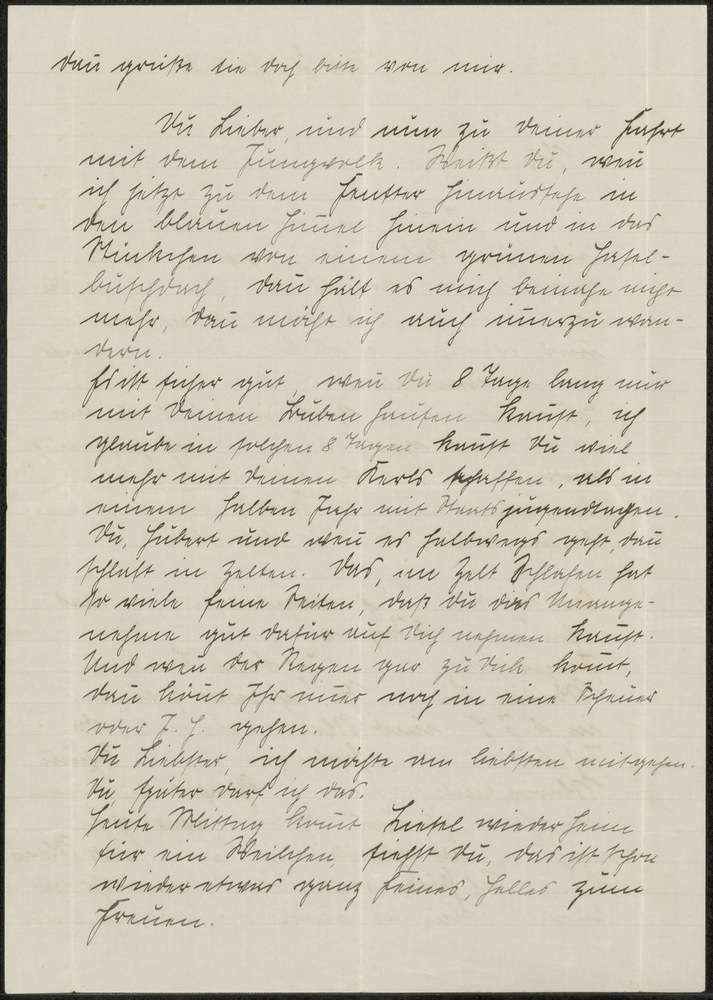 dan̅ grüße sie doch bitte von mir.
Du Lieber, und nun zu Deiner Fahrt
mit dem Jungvolk. Weißt Du, wen̅
ich jetzt zu dem Fenster hinaussehe in
den blauen Him̅el hinein und in das
Stückchen von einem grünen Hasel-
buschdach, dan̅ hält es mich beinahe nicht
mehr, dan̅ möcht ich auch im̅erzu wan-
dern.
Es ist sicher gut, wen̅ Du 8 Tage lang nur
mit Deinen Buben hausen kan̅st, ich
glaube in solchen 8 Tagen kan̅st Du viel
mehr mit Deinen Kerls schaffen, als in
einem halben Jahr mit Staatsjugendtagen.
Du, Hubert und wen̅ es halbwegs geht, dan̅
schlaft in Zelten. Das, im Zelt Schlafen hat
so viele feine Seiten, daß Du dies Unange-
nehme gut dafür auf Dich nehmen kan̅st.
Und wen̅ der Regen gar zu dick kom̅t,
dan̅ kön̅t Ihr im̅er noch in eine Scheuer
oder J. H. gehen.
Du Liebster, ich möchte am liebsten mitgehen.
Du, später darf ich das.
Heute Mittag kom̅t Liesel wieder heim
für ein Weilchen, siehst Du, das ist schon
wieder etwas ganz Feines, Helles zum
Freuen.